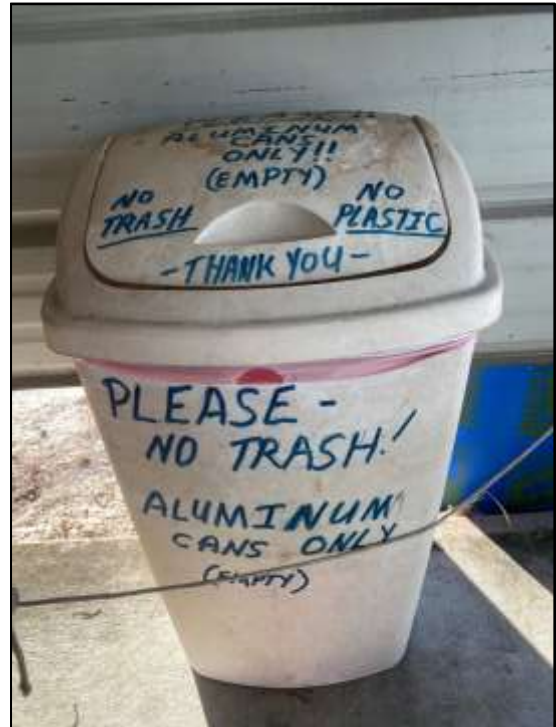 PLEASE!!
ALUMINUM
CANS
ONLY!!
(EMPTY)
NO
TRASH
NO
PLASTIC
-THANK YOU-
PLEASE -
NO TRASH!
ALUMINUM
CANS ONLY
(EMPTY)